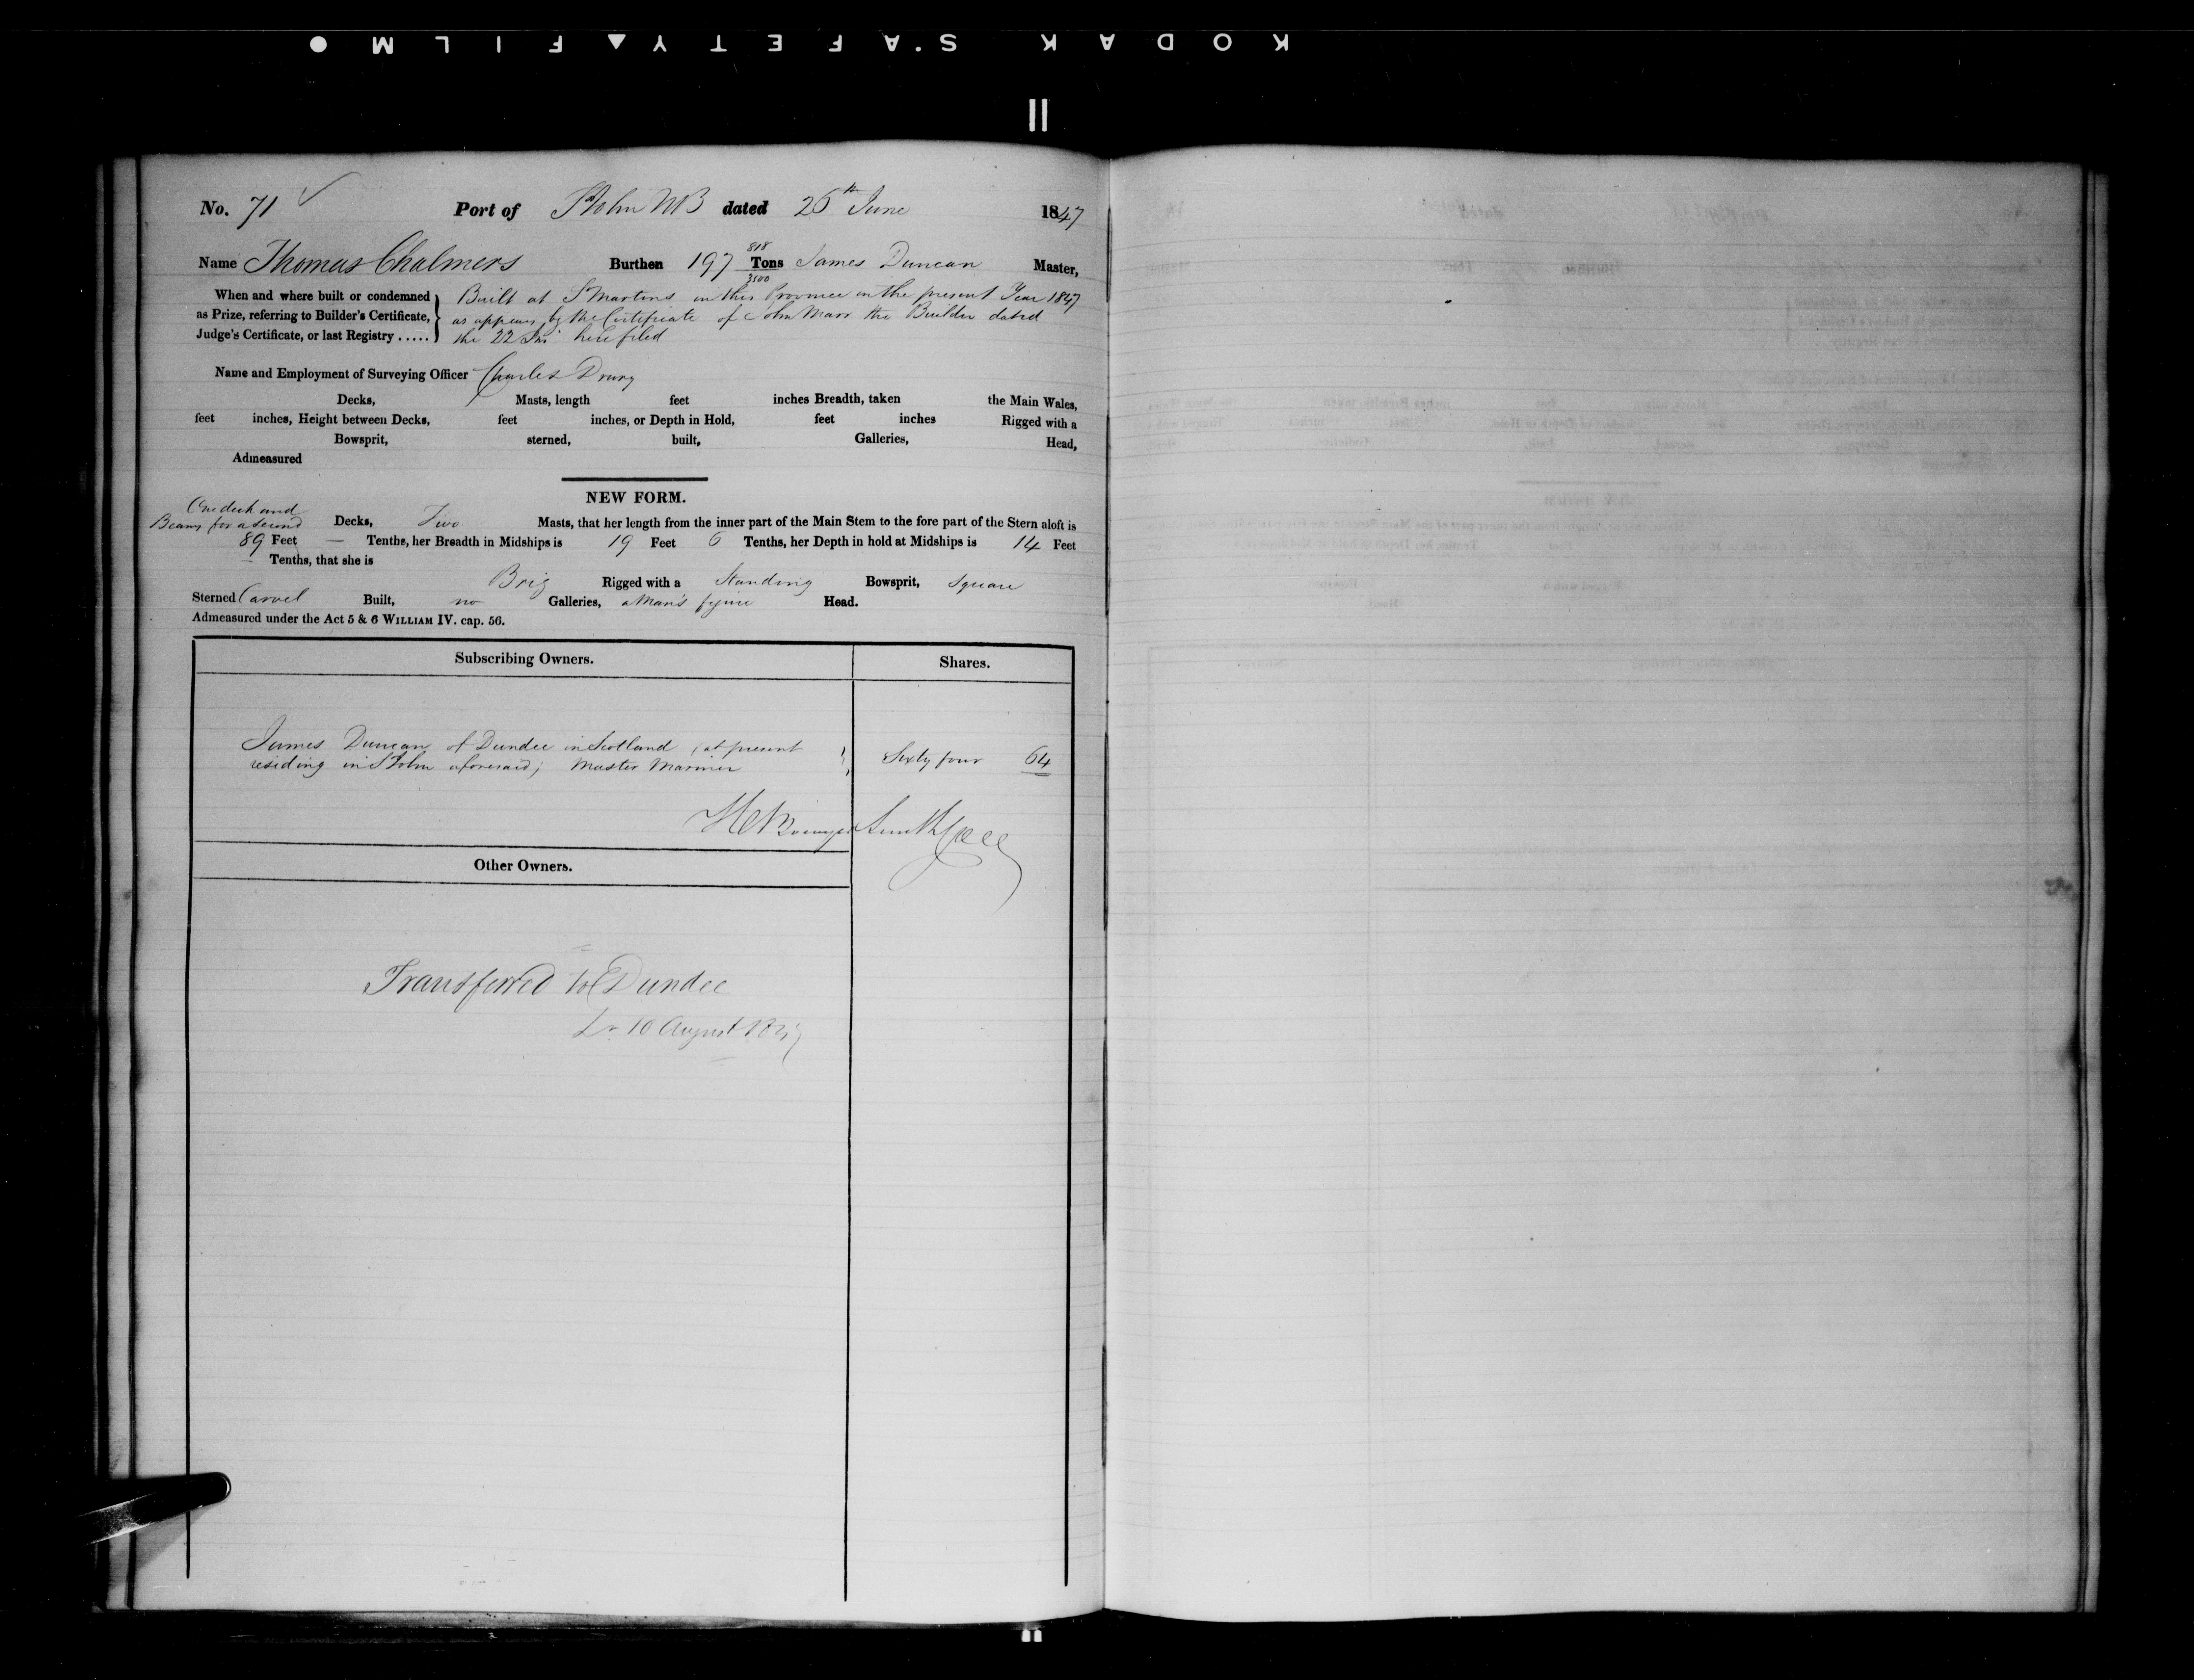 KODAK SAFETY FILM
No. 71 Port of St John NB dated 26th June 1847
Name Thomas Chalmers Burthen 197 818/3500 Tons James Duncan Master,
When and where built or condemned as Prize, referring to Builder's Certificate, Judge's Certificate, or last Registry .....
Built at St Martins in this Province in the present Year 1847
as appears by the Certificate of John Marr the Builder dated
the 22 Ins here filed
Name and Employment of Surveying Officer Charles Drury
Decks, Masts, length feet inches Breadth, taken the Main Wales,
feet inches, Height between Decks, feet inches, or Depth in Hold, feet inches Rigged with a
Bowsprit, sterned, built, Galleries, Head,
Admeasured
NEW FORM.
One deck and
Beams for a second Decks, Two Masts, that her length from the inner part of the Main Stem to the fore part of the Stern aloft is
89 Feet — Tenths, her Breadth in Midships is 19 Feet 6 Tenths, her Depth in hold at Midships is 14 Feet
— Tenths, that she is
Brig Rigged with a Standing Bowsprit, Square
Sterned Carvel Built, no Galleries, a Man's figure Head.
Admeasured under the Act 5 & 6 WILLIAM IV. cap. 56.
Subscribing Owners. Shares.
James Duncan of Dundee in Scotland (at present
residing in St John aforesaid) Master Mariner Sixty four 64
Other Owners.
Transferred to Dundee
10 August 1847